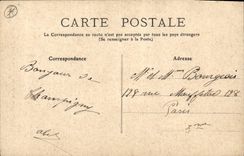 CARTE POSTALE
La Correspondance au recto n'est pas acceptée par tous les pays étrangers
(Se renseigner à la Poste)
Correspondance
Adresse
Bonjour de
Champigny
Mr et Mme Bourgeois
128 rue 128
Paris